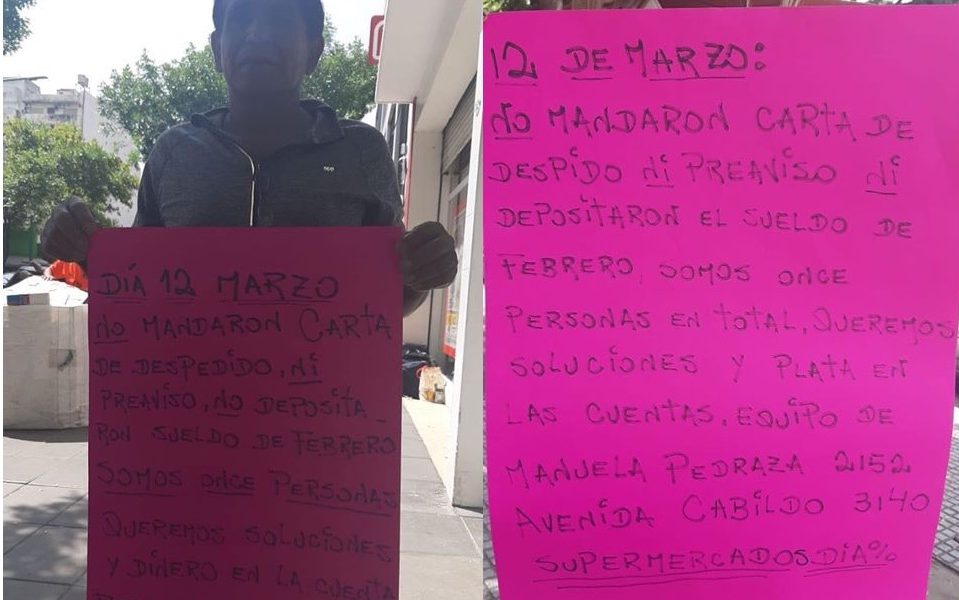 DÍA 12 MARZO
NO MANDARON CARTA
DE DESPEDIDO, NI
PREAVISO, NO DEPOSITA_
RON SUELDO DE FEBRERO
SOMOS ONCE PERSONAS
QUEREMOS SOLUCIONES
Y DINERO EN LA CUENTA
12 DE MARZO:
NO MANDARON CARTA DE
DESPIDO NI PREAVISO NI
DEPOSITARON EL SUELDO DE
FEBRERO, SOMOS ONCE
PERSONAS EN TOTAL, QUEREMOS
SOLUCIONES Y PLATA EN
LAS CUENTAS, EQUIPO DE
MANUELA PEDRAZA 2152
AVENIDA CABILDO 3140
SUPERMERCADOS DIA%